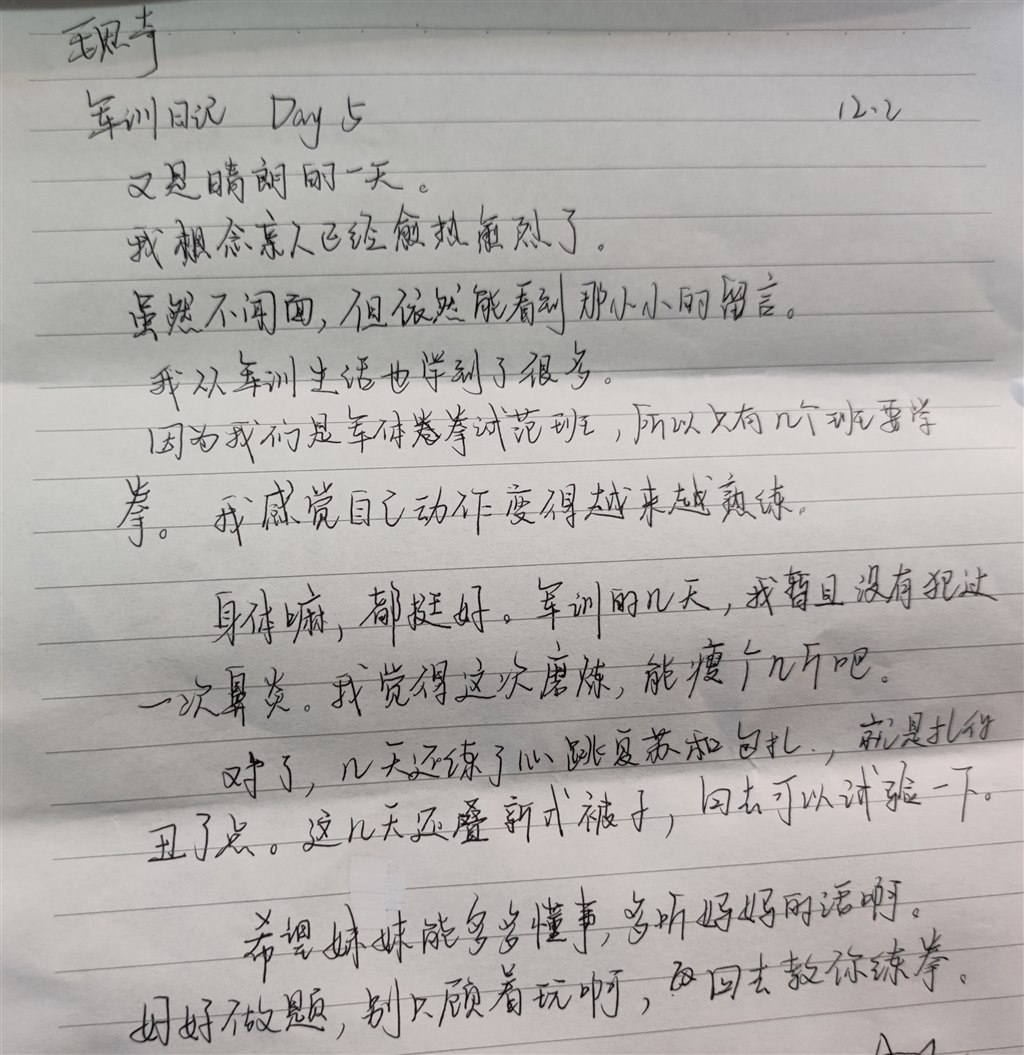 王思奇
军训日记 Day 5 12.2
又是晴朗的一天。
我想念亲人已经愈热愈烈了。
虽然不闻面，但依然能看到那小小的留言。
我从军训生活也学到了很多。
因为我们是军体拳试范班，所以只有几个班要学
拳。我感觉自己动作变得越来越熟练。
身体嘛，都挺好。军训的几天，我暂且没有犯过
一次鼻炎。我觉得这次磨炼，能瘦个几斤吧。
对了，几天还练了心跳复苏和包扎，就是扎得
丑了点。这几天还叠新式被子，回去可以试验一下。
希望妹妹能多多懂事，多听妈妈的话啊。
好好做题，别只顾着玩啊，回去教你练拳。